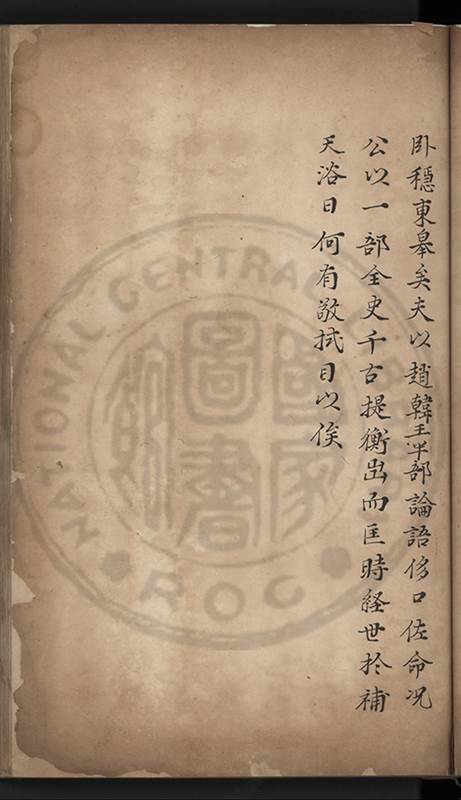 卧穩東皋矣夫以趙韓王半部論語侈口佐命况
公以一部全史千古提衡出而匡時経世扵補
天浴日何有敬拭目以俟
NATIONAL CENTRAL
ROC
國家
圖書